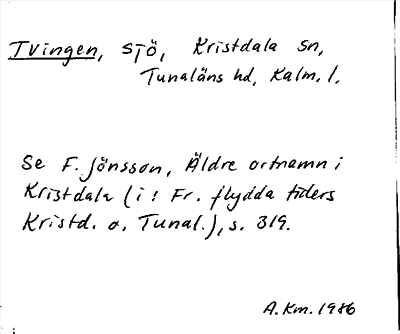 Tvingen, sjö, Kristdala sn,
Tunaläns hd, Kalm. l.
Se F. Jönsson, Äldre ortnamn i
Kristdala (i: Fr. flydda tiders
Kristd. o. Tunal.), s. 319.
A.Km. 1986